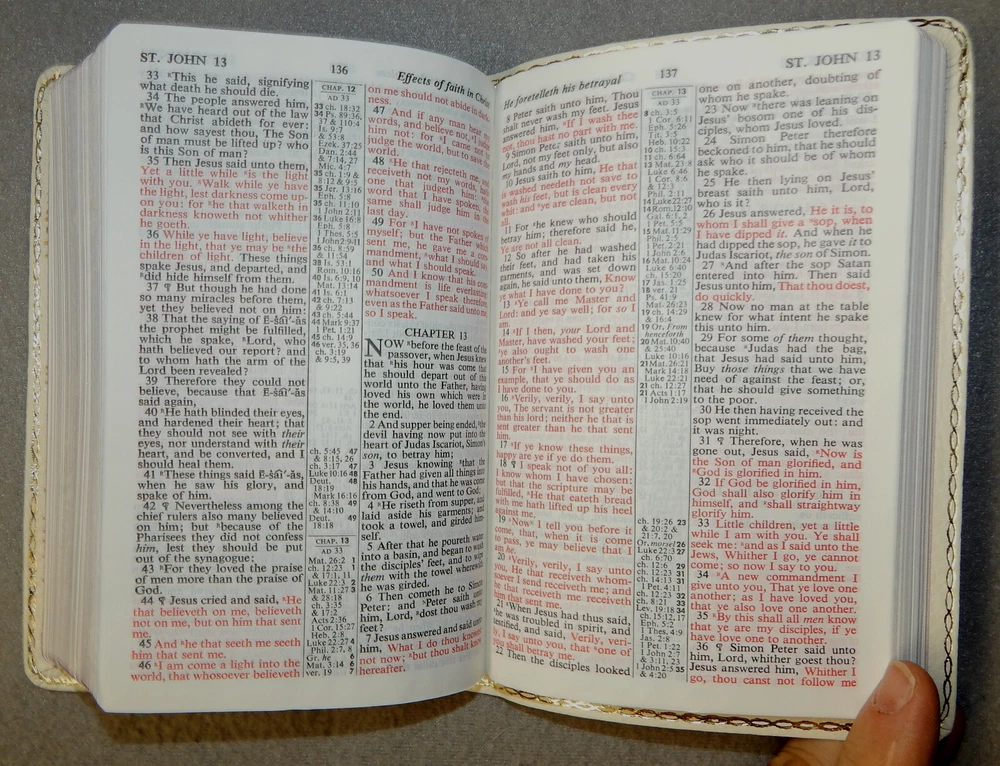 ST. JOHN 13
136
Effects of faith in Christ
33 This he said, signifying
what death he should die.
34 The people answered him,
We have heard out of the law
that Christ abideth for ever:
and how sayest thou, The Son
of man must be lifted up? who
is this Son of man?
35 Then Jesus said unto them,
Yet a little while is the light
with you. Walk while ye have
the light, lest darkness come up-
on you: for he that walketh in
darkness knoweth not whither
he goeth.
36 While ye have light, believe
in the light, that ye may be the
children of light. These things
spake Jesus, and departed, and
did hide himself from them.
37 ¶ But though he had done
so many miracles before them,
yet they believed not on him:
38 That the saying of E-šāi'-ăs
the prophet might be fulfilled,
which he spake, Lord, who
hath believed our report? and
to whom hath the arm of the
Lord been revealed?
39 Therefore they could not
believe, because that E-šāi'-ăs
said again,
40 He hath blinded their eyes,
and hardened their heart; that
they should not see with their
eyes, nor understand with their
heart, and be converted, and I
should heal them.
41 These things said E-šāi'-ăs,
when he saw his glory, and
spake of him.
42 ¶ Nevertheless among the
chief rulers also many believed
on him; but because of the
Pharisees they did not confess
him, lest they should be put
out of the synagogue:
43 For they loved the praise
of men more than the praise of
God.
44 ¶ Jesus cried and said, He
that believeth on me, believeth
not on me, but on him that sent
me.
45 And he that seeth me seeth
him that sent me.
46 I am come a light into the
world, that whosoever believeth
CHAP. 12
AD 33
33 ch. 18:32
34 Ps. 89:36,
37 & 110:4
Is. 9:7
& 53:8
Ezek. 37:25
Dan. 2:44
& 7:14, 27
Mic. 4:7
35 ch. 1:9 &
8:12 & 9:5
35 Jer. 13:16
Eph. 5:8
35 ch. 11:10
1 John 2:11
36 Luke 16:8
Eph. 5:8
1 Thes. 5:5
1 John 2:9-11
36 ch. 8:59
& 11:54
38 Is. 53:1
Rom. 10:16
40 Is. 6:9, 10
Mat. 13:14
41 Is. 6:1
42 ch. 7:13
& 9:22
43 ch. 5:44
44 Mark 9:37
1 Pet. 1:21
45 ch. 14:9
46 ver. 35, 36
ch. 3:19
& 9:5, 39
ch. 5:45 47
& 8:15, 26
ch. 3:17 47
Luke 10:16 48
Deut. 48
18:19
Mark 16:16
ch. 8:38 49
& 14:10
Deut. 49
18:18
CHAP. 13
AD 33
Mat. 26:2 1
ch. 12:23 1
& 17:1, 11
Luke 22:3 2
Mat. 11:27 3
& 28:18
ch. 3:35
& 17:2
Acts 2:36
1 Cor. 15:27
Heb. 2:8
Luke 22:27 4
Phil. 2:7, 8
Gr. he 6
Mat. 3:14 6
ver. 19 7
on me should not abide in dark-
ness.
47 And if any man hear my
words, and believe not, I judge
him not: for I came not to
judge the world, but to save the
world.
48 He that rejecteth me, and
receiveth not my words, hath
one that judgeth him: the
word that I have spoken, the
same shall judge him in the
last day.
49 For I have not spoken of
myself; but the Father which
sent me, he gave me a com-
mandment, what I should say,
and what I should speak.
50 And I know that his com-
mandment is life everlasting:
whatsoever I speak therefore,
even as the Father said unto me,
so I speak.
CHAPTER 13
NOW before the feast of the
passover, when Jesus knew
that his hour was come that
he should depart out of this
world unto the Father, having
loved his own which were in
the world, he loved them unto
the end.
2 And supper being ended, the
devil having now put into the
heart of Judas Iscariot, Simon's
son, to betray him;
3 Jesus knowing that the
Father had given all things into
his hands, and that he was come
from God, and went to God;
4 He riseth from supper, and
laid aside his garments; and
took a towel, and girded him-
self.
5 After that he poureth water
into a basin, and began to wash
the disciples' feet, and to wipe
them with the towel wherewith
he was girded.
6 Then cometh he to Simon
Peter: and Peter saith unto
him, Lord, dost thou wash my
feet?
7 Jesus answered and said unto
him, What I do thou knowest
not now; but thou shalt know
hereafter.
He foretelleth his betrayal
137
ST. JOHN 13
8 Peter saith unto him, Thou
shalt never wash my feet. Jesus
answered him, If I wash thee
not, thou hast no part with me.
9 Simon Peter saith unto him,
Lord, not my feet only, but also
my hands and my head.
10 Jesus saith to him, He that
is washed needeth not save to
wash his feet, but is clean every
whit: and ye are clean, but not
all.
11 For he knew who should
betray him; therefore said he,
Ye are not all clean.
12 So after he had washed
their feet, and had taken his
garments, and was set down
again, he said unto them, Know
ye what I have done to you?
13 Ye call me Master and
Lord: and ye say well; for so I
am.
14 If I then, your Lord and
Master, have washed your feet;
ye also ought to wash one
another's feet.
15 For I have given you an
example, that ye should do as
I have done to you.
16 Verily, verily, I say unto
you, The servant is not greater
than his lord; neither he that is
sent greater than he that sent
him.
17 If ye know these things,
happy are ye if ye do them.
18 ¶ I speak not of you all:
I know whom I have chosen:
but that the scripture may be
fulfilled, He that eateth bread
with me hath lifted up his heel
against me.
19 Now I tell you before it
come, that, when it is come
to pass, ye may believe that I
am he.
20 Verily, verily, I say unto
you, He that receiveth whom-
soever I send receiveth me; and
he that receiveth me receiveth
him that sent me.
21 When Jesus had thus said,
he was troubled in spirit, and
testified, and said, Verily, veri-
ly, I say unto you, that one of
you shall betray me.
22 Then the disciples looked
CHAP. 13
AD 33
8 ch. 3:5
1 Cor. 6:11
Eph. 5:26
Tit. 3:5
Heb. 10:22
10 ch. 15:3
11 ch. 6:64
13 Mat. 23:8
Luke 6:46
1 Cor. 8:6
& 12:3
Phil. 2:11
14 Luke 22:27
14 Rom. 12:10
Gal. 6:1, 2
1 Pet. 5:5
15 Mat. 11:29
Phil. 2:5
1 Pet. 2:21
1 John 2:6
16 Mat. 10:24
Luke 6:40
ch. 15:20
17 Jas. 1:25
18 ver. 21
Ps. 41:9
Mat. 26:23
19 ch. 14:29
& 16:4
19 Or, From
henceforth
20 Mat. 10:40
& 25:40
Luke 10:16
21 Mat. 26:21
Mark 14:18
Luke 22:21
21 ch. 12:27
21 Acts 1:17
1 John 2:19
ch. 19:26 23
& 20:2 &
21:7, 20
Or, morsel 26
Luke 22:3 27
ch. 6:70
ch. 12:6 29
ch. 12:23 31
ch. 14:13 31
1 Pet. 4:11
ch. 12:23 32
ch. 8:21 33
Lev. 19:18 34
ch. 15:12, 17
Eph. 5:2
1 Thes. 4:9
Jas. 2:8
1 Pet. 1:22
1 John 2:7
& 3:11, 23
1 John 2:5 35
& 4:20
one on another, doubting of
whom he spake.
23 Now there was leaning on
Jesus' bosom one of his dis-
ciples, whom Jesus loved.
24 Simon Peter therefore
beckoned to him, that he should
ask who it should be of whom
he spake.
25 He then lying on Jesus'
breast saith unto him, Lord,
who is it?
26 Jesus answered, He it is, to
whom I shall give a sop, when
I have dipped it. And when he
had dipped the sop, he gave it to
Judas Iscariot, the son of Simon.
27 And after the sop Satan
entered into him. Then said
Jesus unto him, That thou doest,
do quickly.
28 Now no man at the table
knew for what intent he spake
this unto him.
29 For some of them thought,
because Judas had the bag,
that Jesus had said unto him,
Buy those things that we have
need of against the feast; or,
that he should give something
to the poor.
30 He then having received the
sop went immediately out: and
it was night.
31 ¶ Therefore, when he was
gone out, Jesus said, Now is
the Son of man glorified, and
God is glorified in him.
32 If God be glorified in him,
God shall also glorify him in
himself, and shall straightway
glorify him.
33 Little children, yet a little
while I am with you. Ye shall
seek me: and as I said unto the
Jews, Whither I go, ye cannot
come; so now I say to you.
34 A new commandment I
give unto you, That ye love one
another; as I have loved you,
that ye also love one another.
35 By this shall all men know
that ye are my disciples, if ye
have love one to another.
36 ¶ Simon Peter said unto
him, Lord, whither goest thou?
Jesus answered him, Whither I
go, thou canst not follow me